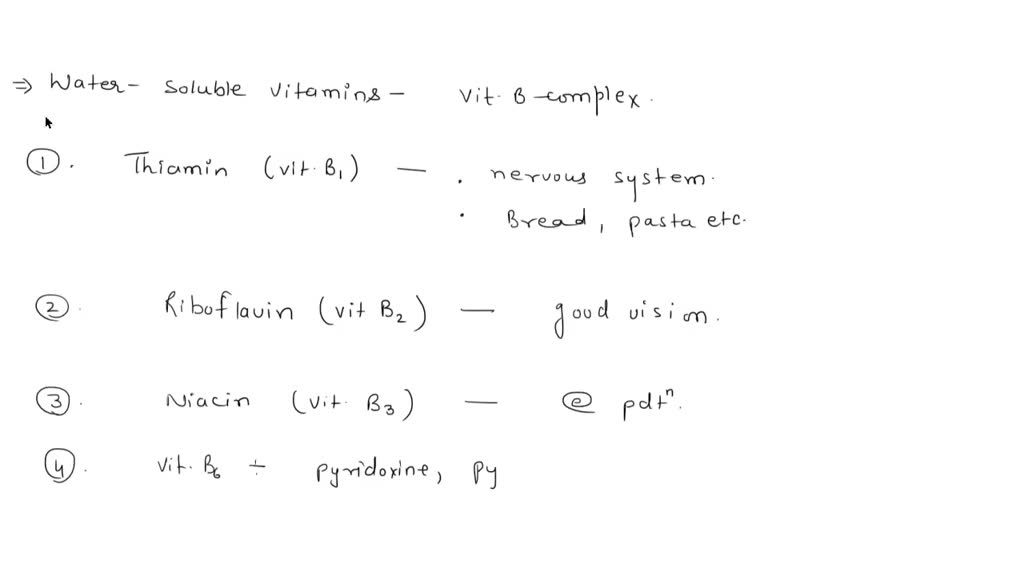 ⇒ Water- soluble vitamins - vit. B-complex.
① . Thiamin (vit. B₁) — . nervous system.
. Bread, pasta etc.
② . Riboflavin (vit B₂) — good vision.
③ . Niacin (vit. B₃) — ⓔ pdtⁿ.
④ . vit. B₆ ÷ pyridoxine, py